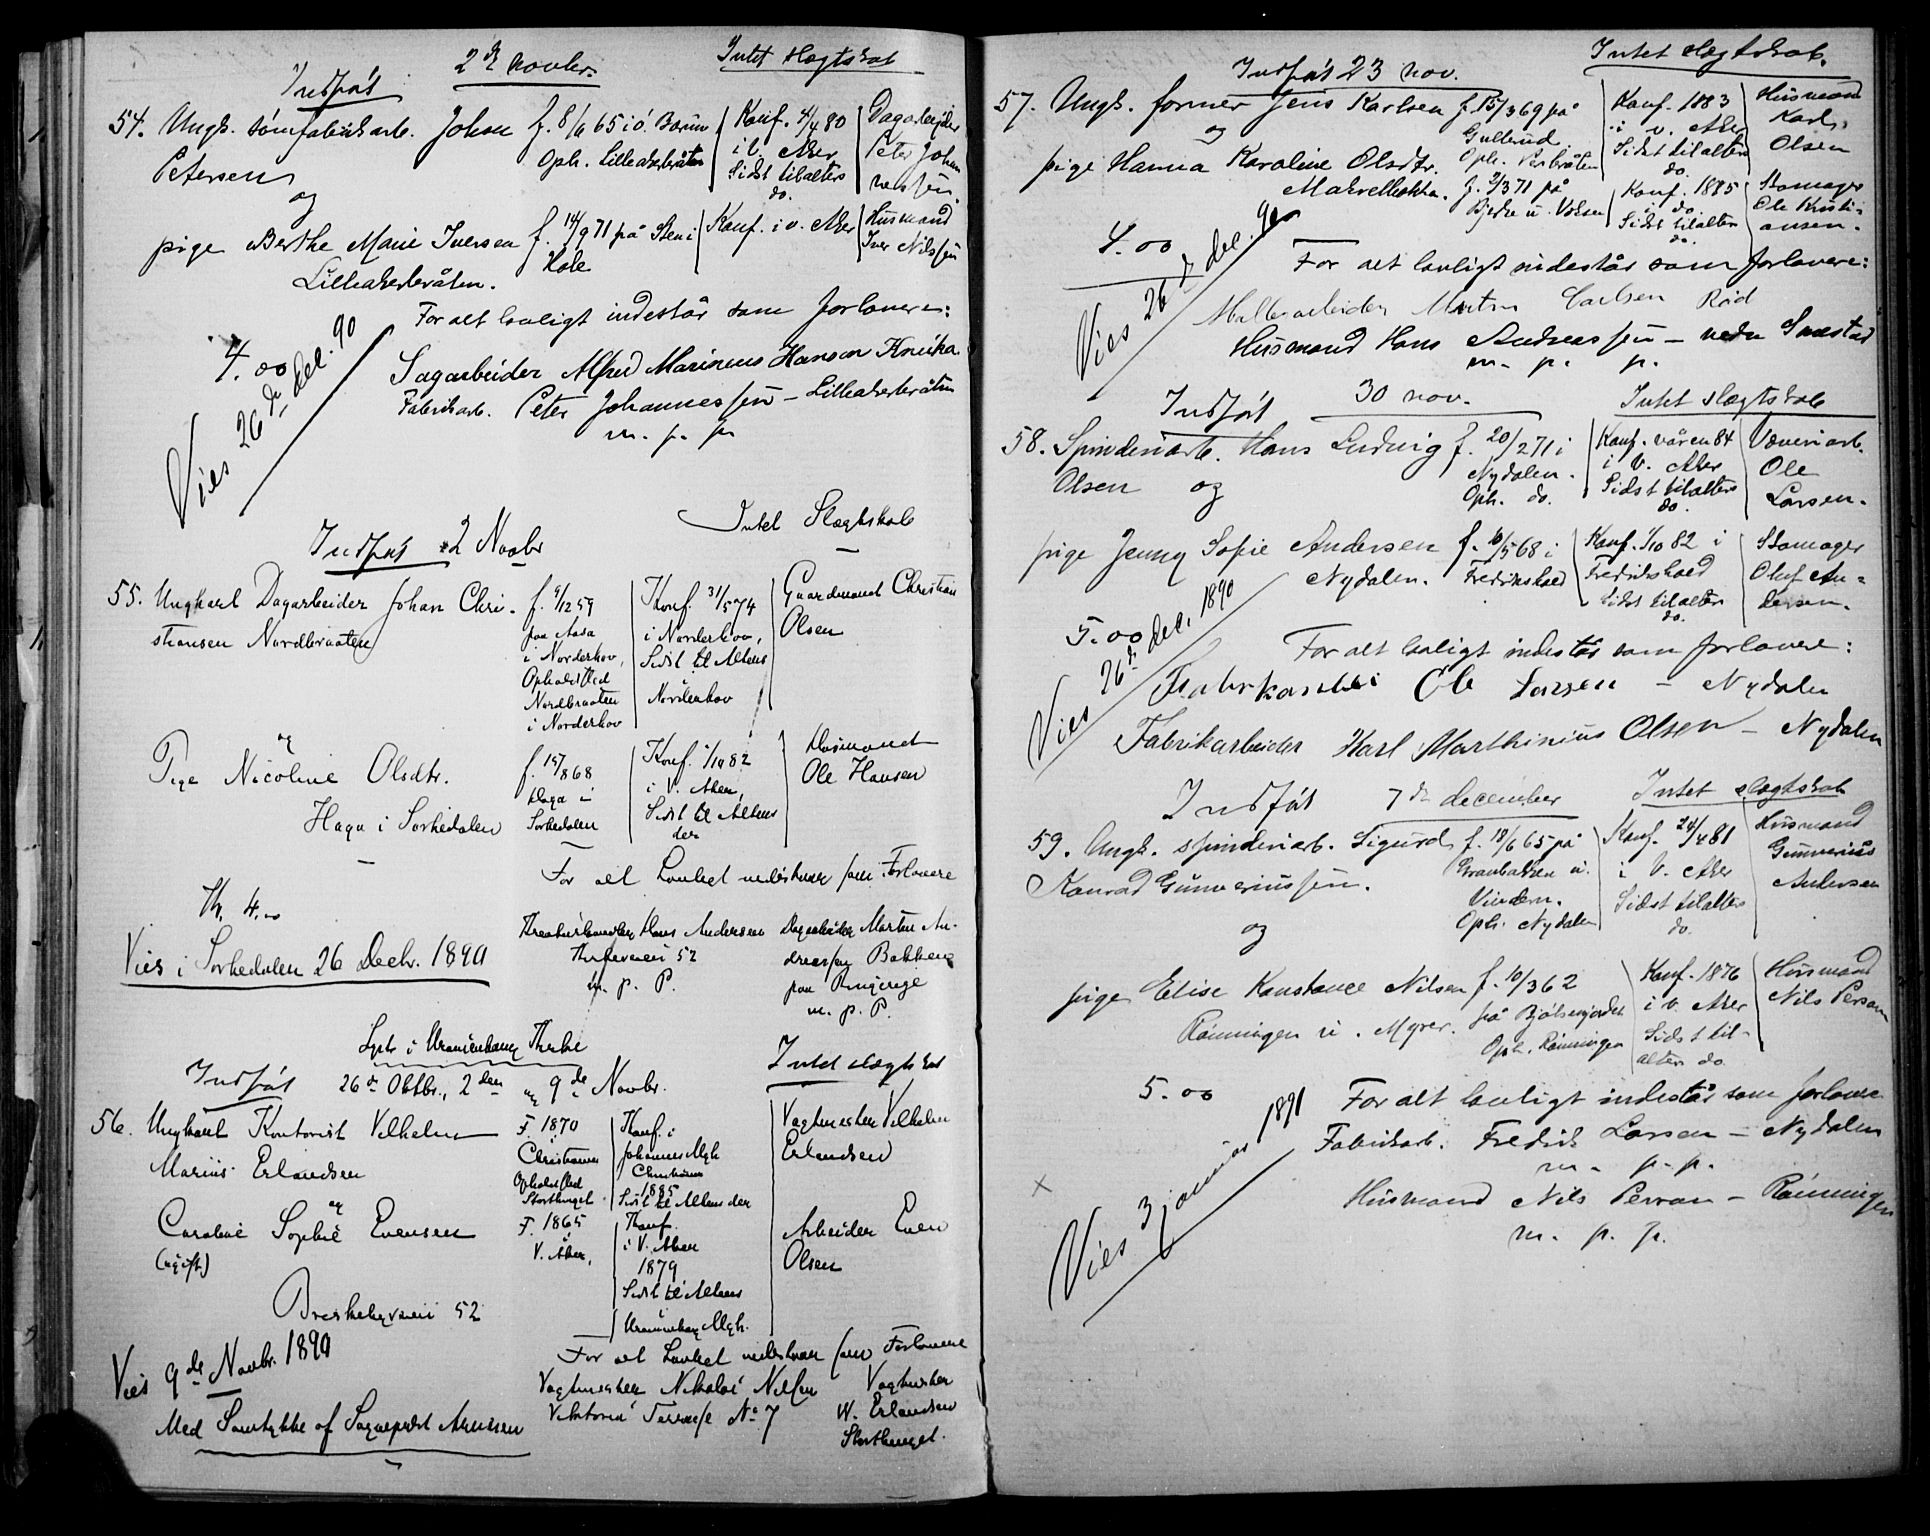 Indført 2de Novbr. Intet slægtskab
54. Ungk. sømfabrikarb. Johan f. 8/6 65 i ö. Bærum Konf. 4/4 80 Dagarbejder
Petersen Oph. Lilleakerbråten i V. Aker Peter Johan-
og Sidst til alters do. nessen
pige Berthe Marie Iversen f. 14/9 71 på Sten i Konf. i v. Aker Husmand
Lilleakerbråten. Hole Iver Nilssen
For alt lovligt indestår som forlovere:
4.00 Sagarbeider Alfred Marinius Hansen
Fabrikarb. Peter Johannessen – Lilleakerbråten
m. p. p.
Vies 26de dec. 90
Intet Slægtskab
Indført 2 Novbr
55. Ungkarl Dagarbeider Johan Chri- f. 9/12 59 Konf. 31/5 74 Gaardmand Christian
stiansen Nordbraaten paa Aasa i Norderhov, Olsen
i Norderhov, Sidst til Alters
Opholdssted
Nordbraaten Norderhov
i Norderhov
og
Pige Nicoline Olsdtr. f. 15/8 68 Konf. 1/10 82 Husmand
Haga i i V. Aker, Ole Hansen
Haga i Sørkedalen Sørkedalen Sidst til Alters
der
For alt Lovligt indestaar som Forlovere
4.00
Kreaturhandler Hans Andersen Dagarbeider Martin An-
Vies i Sørkedalen 26 Decbr. 1890 52 dreassen Bakken
m. p. P. paa Ringerige
m. p. P.
Lyst i Uranienborg Kirke
Indført 26de Oktbr., 2den og 9de Novbr. Intet slægtskab
56. Ungkarl Kontorist Vilhelm F. 1870 Konf. i Vagtmester Vilhelm
Marius Erlandsen Christiania Johannes Mgh Erlandsen
Opholdssted Christiania
Storthinget 1885
og Sidst til Alters der
Caroline Sophie Evensen F. 1865 Konf. Arbeider Even
(ugift) V. Aker, i V. Aker Olsen
1879
Sidst til Alters
Briskebyveien 52 Uranienborg Mgh.
For alt Lovligt indestaar som Forlovere
Vies 9de Novbr. 1890
Vagtmester Nikolai Nilsen Vagtmester
Viktoria Terrasse No 7 W. Erlandsen
Med Samtykke af Sognepræst Storthinget.
Indført 23 nov. Intet slægtskab.
57. Ungk. former Jens Karlsen f. 15/3 69 på Konf. 1883 Husmand
og Gullerud i v. Aker Karl
Oph. Sidst til alters do. Olsen
pige Hanna Karoline Olsdtr. f. 2/3 71 på Konf. 1885 Skomager
Makrelbekka. Bjerke u. Voksen i do. Ole Kristi-
Sidst til alters do. ansen.
4.00
For alt lovligt indestår som forlovere:
Møllearbeider Martin Carlsen Röd
Husmand Hans Andreassen – nedre Smestad
m. p. p.
Vies 26de dec. 90
Indført 30 nov. Intet slægtskab
58. Spinderiarb. Hans Ludvig f. 20/2 71 i Konf. våren 84 Væveriarb.
Olsen og Nydalen. i V. Aker Ole
Oph. do. Sidst til alters do. Larsen.
pige Jenny Sofie Andersen f. 10/5 68 i Konf. 1/10 82 i Skomager
Nydalen. Fredrikshald Fredrikshald Oluf An-
Sidst til alters do. dersen.
5.00
For alt lovligt indestår som forlovere:
Ole Larsen – Nydalen
Fabrikarbeider Karl Marthinius Olsen – Nydalen
Vies 26de dec. 1890
Indført 7de december Intet slægtskab
59. Ungk. spinderiarb. Sigurd f. 18/6 65 på Konf. 24/4 81 Husmand
Konrad Gunneriussen. Granbakken u. i V. Aker Gunnerius
Vindern. Sidst til alters Andersen
og Oph. Nydalen do.
pige Elise Konstance Nilsen f. 10/3 62 Konf. 1876 Husmand
Rønningen u. Myrer. på Bjølsenjordet i v. Aker Nils Person
Oph. Rønningen Sidst til
alters do.
5.00
For alt lovligt indestår som forlovere
Fabrikarb. Fredrik Larsen – Nydalen
m. p. p.
x Husmand Nils Person – Rønningen
m. p. p.
Vies 3 januar 1891